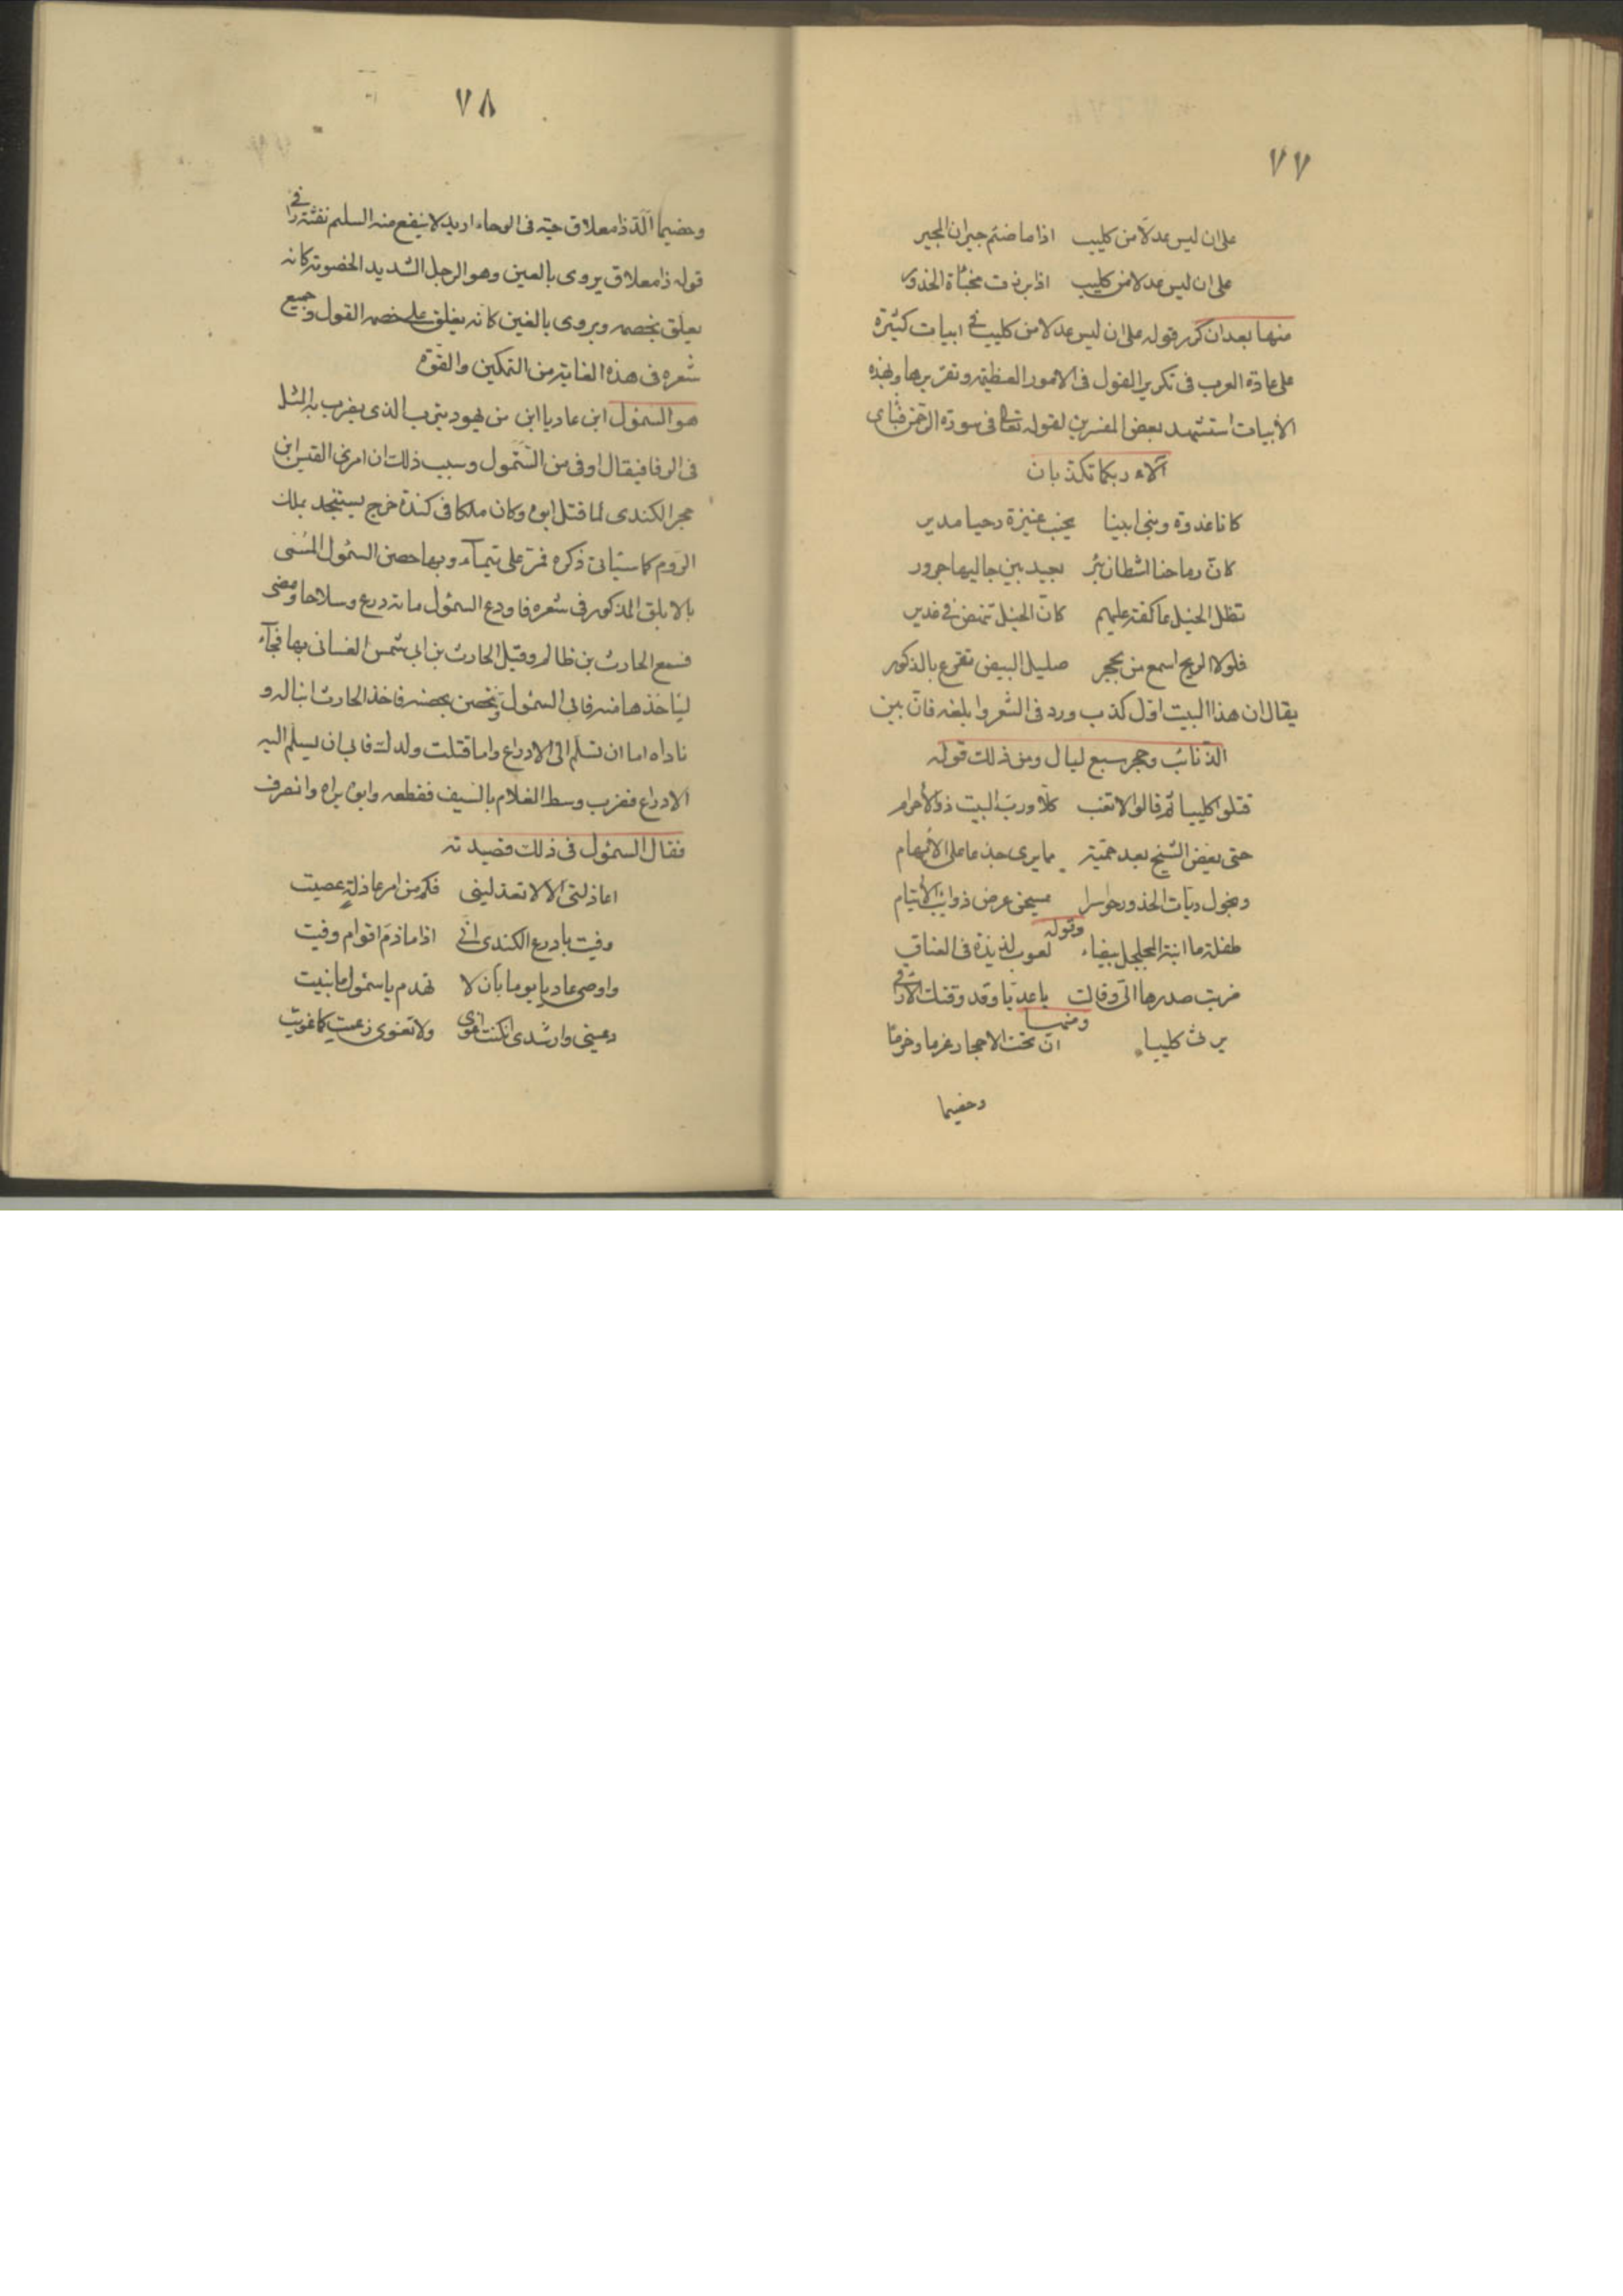 ٧٧
على ان ليس عدلا من كليب اذا ما ضيم جيران المجير
على ان ليس عدلا من كليب اذا برزت مخبأة الخدور
منها بعد ان كرر قوله على ان ليس عدلا من كليب في ابيات كثيرة
على عادة العرب في تكرير القول في الامور العظيمه وتقريرها وبهذه
الأبيات استشهد بعض المفسرين لقوله تعالى في سورة الرحمن فبأى
آلاء ربكما تكذبان
كانا غدوة وبنى ابينا بجنب عنيزة رحيا مدير
كان رماحنا اشطان بئر بعيد بين جاليها جرور
تظل الخيل عاكفة عليهم كان الخيل تنهض في غدير
فلولا الريح اسمع من بحجر صليل البيض تقرع بالذكور
يقال ان هذا البيت اوّل كذب ورد في الشعر وابلغه فانّ بين
الذنائب وحجر سبع ليال ومن ذلك قوله
قتلوا كليبا ثم قالوا لا تثب كلّا ورب البيت ذو الأحرام
حتى يعض الشيخ بعد حميّة مما يرى جذعا على الأبهام
وتجول ربات الخدور حواسرا يمسحن عرض ذوائب الأيتام
وقوله
طفلة ما ابنة المجلجل بيضاء لعوب لذيذة في العناق
ضربت صدرها اليّ وقالت يا عديّا وقد وقتك الأواقي
ومنها
يرثى كليبا انّ تحت الاحجار عزما وخرمًا
وخصيما
٧٨
وخصيما الدّ ذا معلاق حيّة في الوجاء اربد لا ينفع منه السليم نفثة راقي
قوله ذا معلاق يروى بالعين وهو الرجل الشديد الخصومة كانه
يعلّق بخصمه ويروى بالغين كانه يغلق على خصمه القول وجميع
شعره في هذه الغاية من التمكين والقوّة
هو السمؤل ابن عاديا ابن من يهود يثرب الذى يضرب به المثل
في الوفا فيقال اوفى من السّمؤل وسبب ذلك ان امرئ القيس ابن
حجر الكندى لما قتل ابوه وكان ملكا في كندة خرج يستنجد بملك
الرّوم كما سيأتى ذكره فمرّ على تيمآء وبها حصن السمؤل المسمى
بالابلق المذكور في شعره فاودع السمؤل مائة درع وسلاحا ومضى
فسمع الحارث بن ظالم وقيل الحارث بن ابي شمس الغسانى بها فجآء
ليأخذها منه فابى السمؤل وتحصن بحصنه فاخذ الحارث ابنا له و
ناداه اما ان تسلّم الى الادراع واما قتلت ولدك فابى ان يسلّم اليه
الادراع فضرب وسط الغلام بالسّيف فقطعه وابوه يراه وانصرف
فقال السمؤل في ذلك قصيدته
اعاذلتى الا لا تعذلينى فكم من امر عاذلة عصيت
وفيت بادرع الكندى انّي اذا ما ذمّ اقوام وفيت
واوصى عاديا يوما بأن لا تهدم يا سمؤل ما بنيت
دعينى وارشدى ان كنت اغوى ولا تغوى زعمت كما غويت